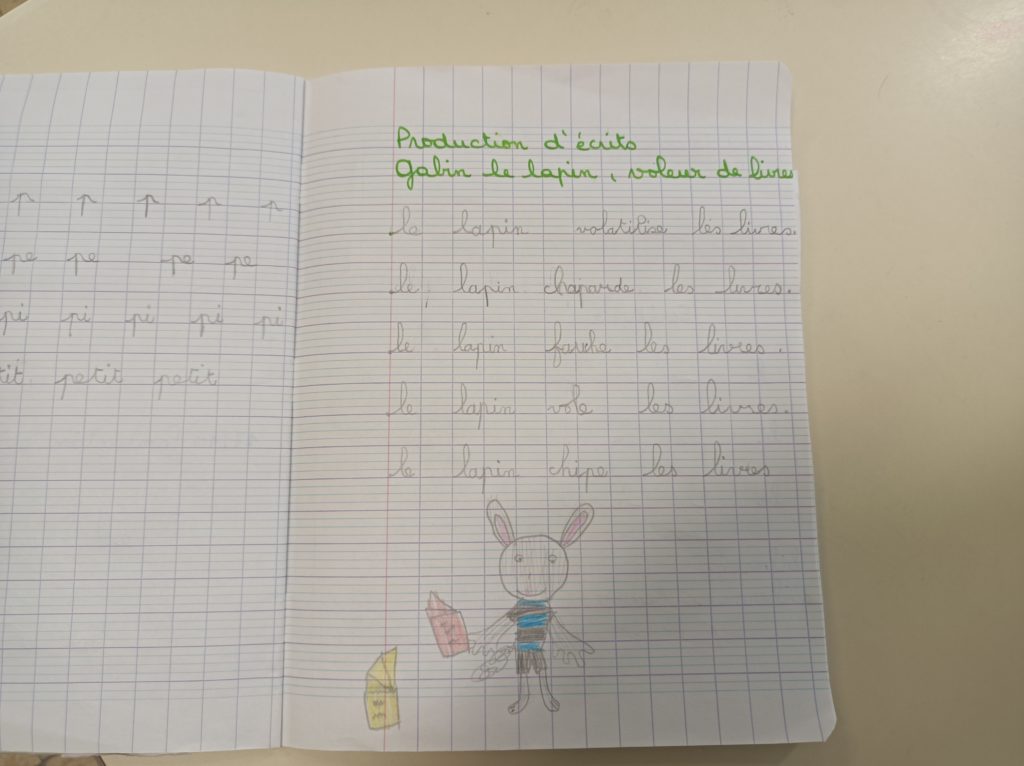 ↑ ↑ ↑ ↑ ↑
pe pe pe pe
pi pi pi pi pi
tit petit petit
Production d'écrits
Gabin le lapin, voleur de livres
le lapin volatilise les livres.
le lapin chaparde les livres.
le lapin fauche les livres.
le lapin vole les livres.
le lapin chipe les livres